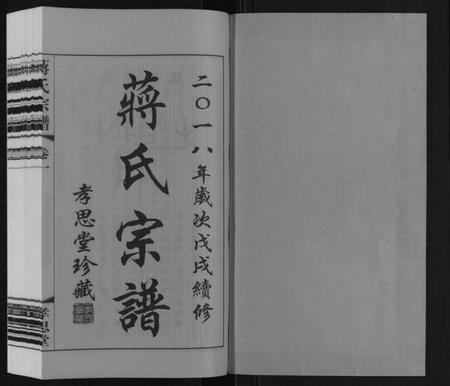 二〇一八年歲次戊戌續修
蔣氏宗譜
孝思堂珍藏
蔣氏宗譜
卷一
孝思堂